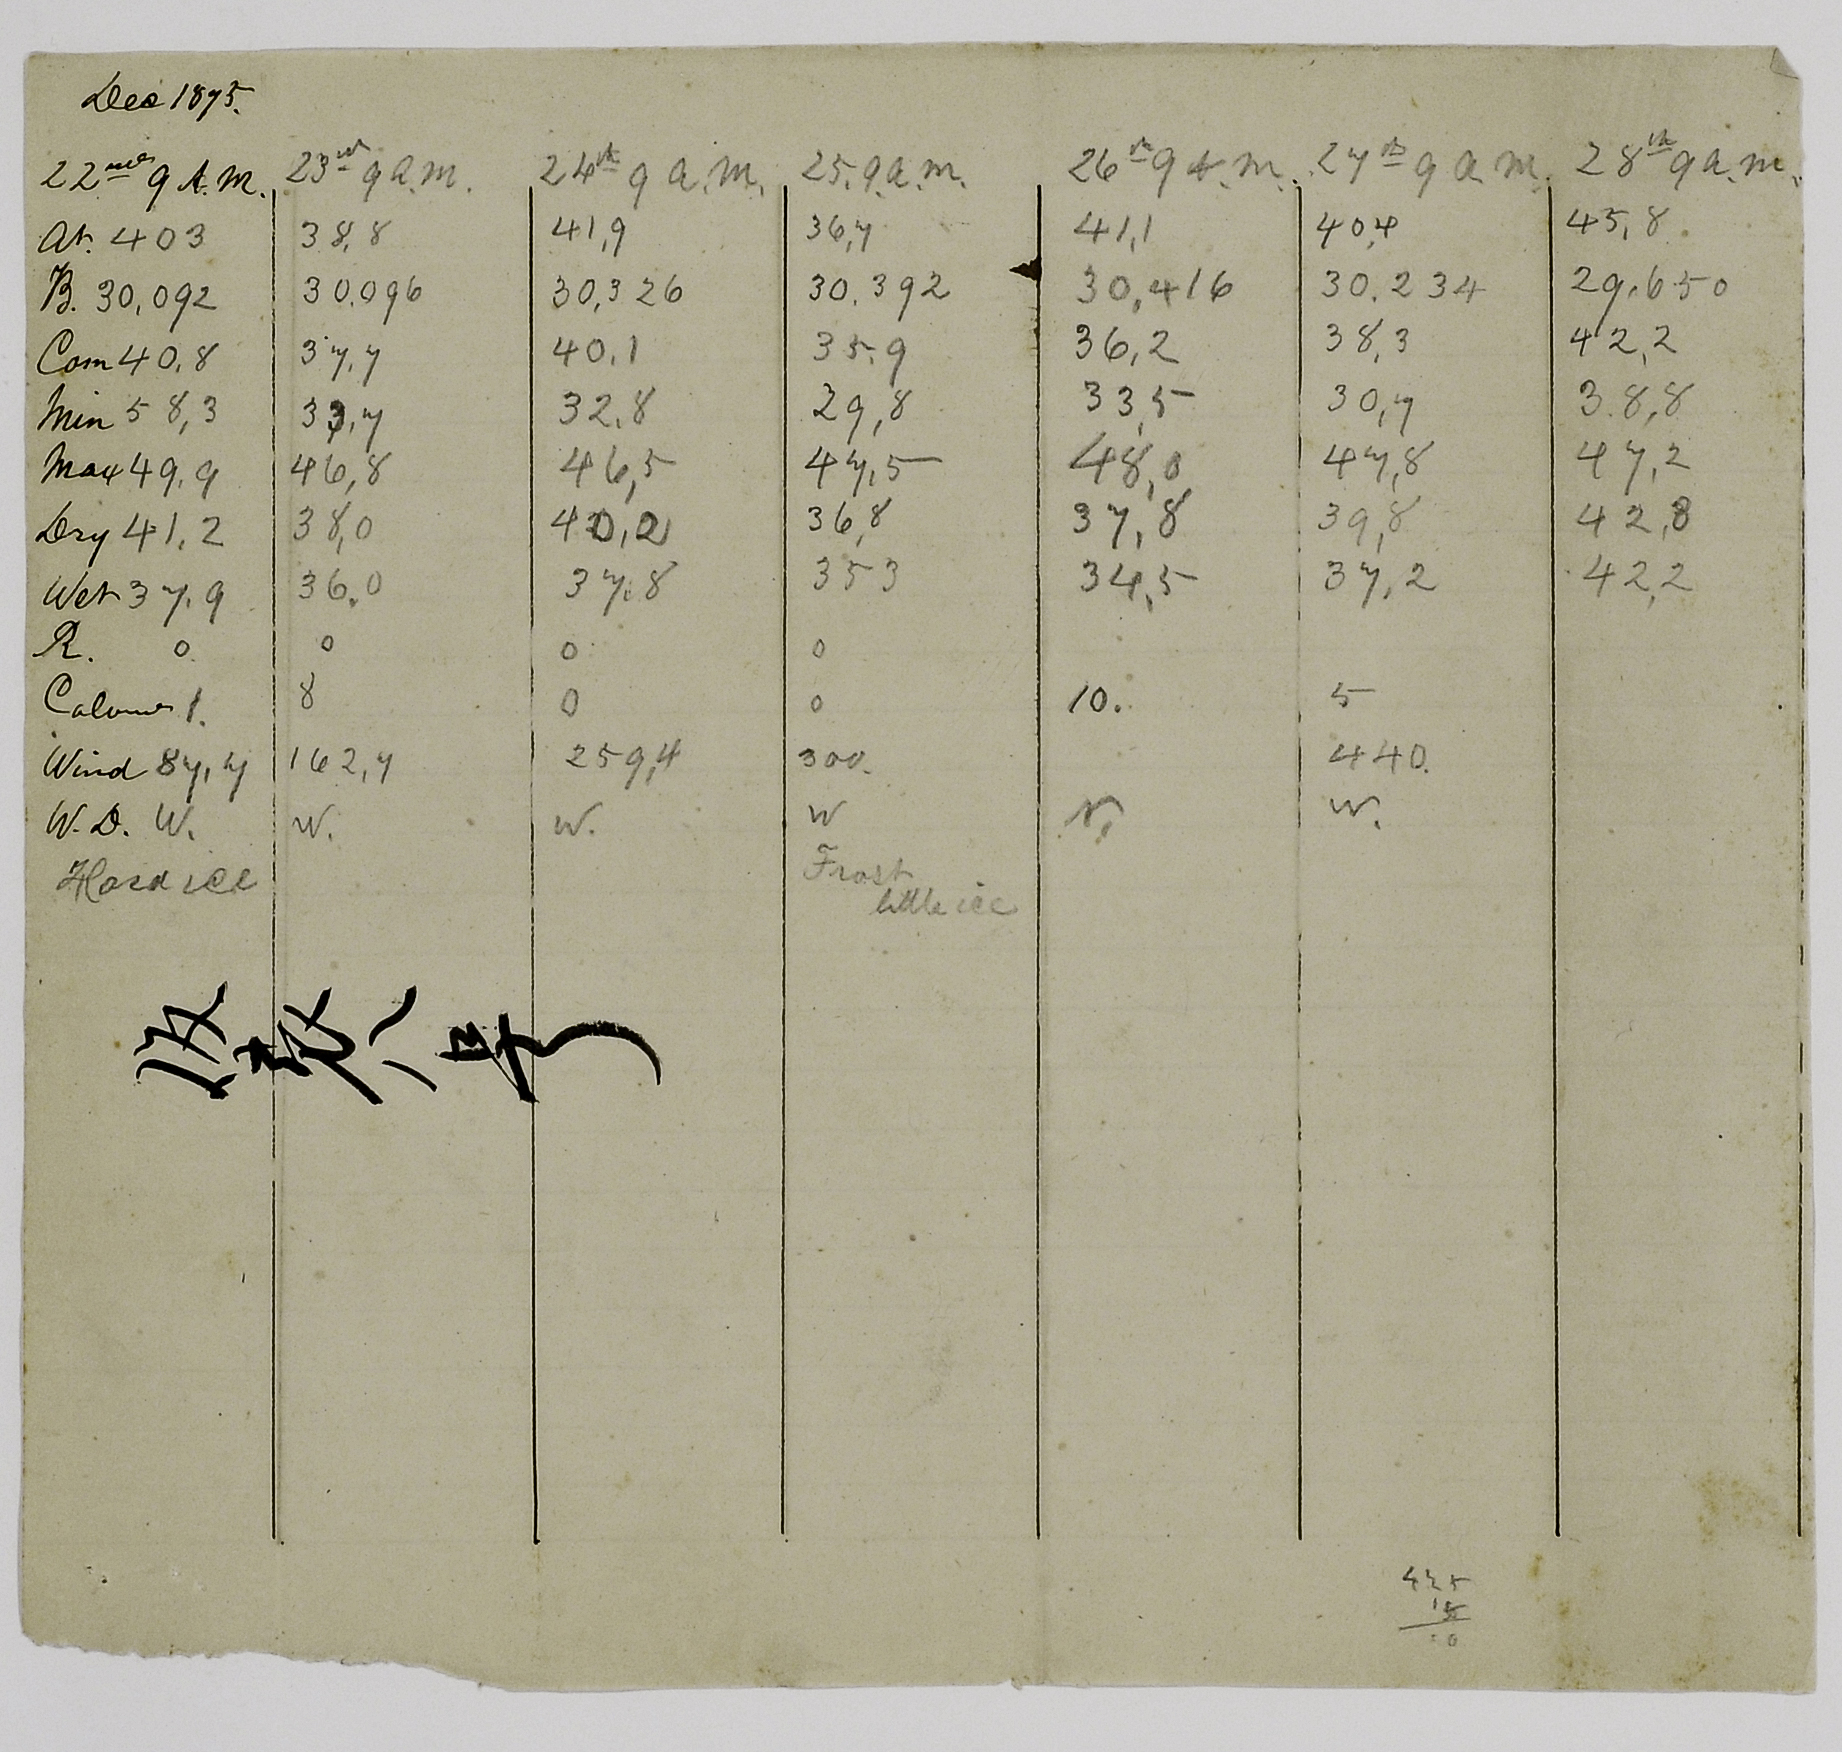 Dec 1875.
22nd 9 A.M. 23rd 9 a.m. 24th 9 a.m. 25. 9.a.m. 26th 9 A.M. 27th 9 a.m. 28th 9 a.m.
At. 403 38,8 41,9 36,7 41,1 40,4 45,8
B. 30,092 30.096 30,326 30.392 30,416 30.234 29.650
Com 40.8 37,7 40.1 35.9 36,2 38,3 42,2
Min 58,3 33,7 32.8 29,8 33,5 30,7 38,8
Max 49.9 46,8 46,5 47,5 48,0 47,8 47,2
Dry 41.2 38,0 40,2 36,8 37,8 39,8 42,8
Wet 37.9 36.0 37.8 353 34,5 37,2 42,2
R. 0 0 0 0
1. 8 0 0 10. 5
Wind 87,7 162,7 259,4 300. 440.
W.D. W. W. W. W N. W.
Hard ice Frost
little ice
425
15
0